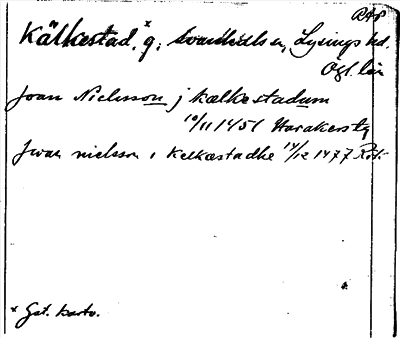 RAP
Kälkestad, ˣ g; Svanhals sn, Lysings hd.
Ögl. län
Joan Nielsson j kælkestadum
10/11 1451 Harakers
Jwan nielsson i Kelkæstadhe 14/12 1477 Rök
× Gst. kartv.